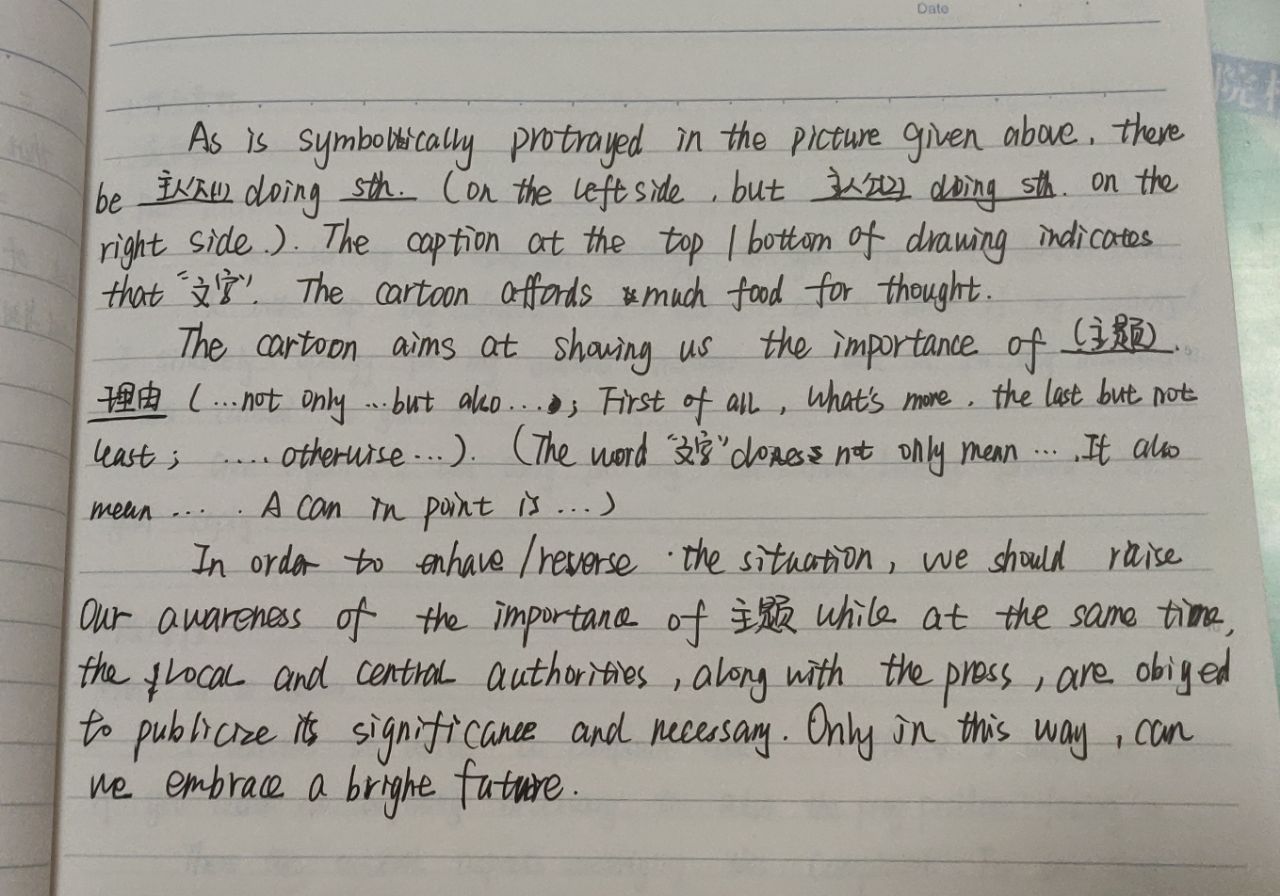 Date
院
As is symbolically protrayed in the picture given above, there
be 主人公(1) doing sth. (on the left side, but 主人公(2) doing sth. on the
right side.). The caption at the top / bottom of drawing indicates
that "文字". The cartoon affords much food for thought.
The cartoon aims at showing us the importance of (主题).
理由 (...not only ...but also...; First of all, What's more, the last but not
least; .... otherwise ...). (The word "文字" does not only mean .... It also
mean .... A can in point is ...)
In order to enhave / reverse the situation, we should raise
our awareness of the importance of 主题 while at the same time,
the local and central authorities, along with the press, are obiged
to publicize its significance and necessary. Only in this way, can
we embrace a bright future.